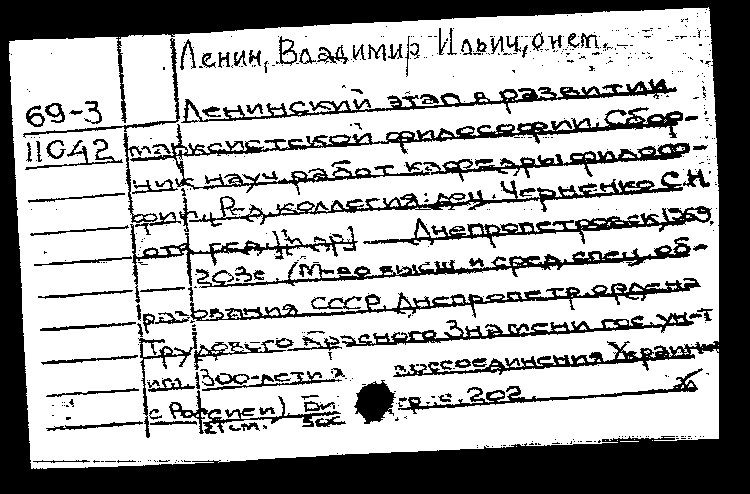 Ленин, Владимир Ильич, о нем.
69-3 Ленинский этап в развитии
11042 марксистской философии. Сбор-
ник науч. работ кафедры филосо-
фии. Ред. коллегия: доц. Черненко С.Н.
отв. ред. [и др.] Днепропетровск, 1969
203с. (М-во высш. и сред. спец. об-
разования СССР. Днепропетр. ордена
Трудового Красного Знамени гос. ун-т
им. 300-летия воссоединения Украины
с Россией) Би р.: с. 202.
21 см.